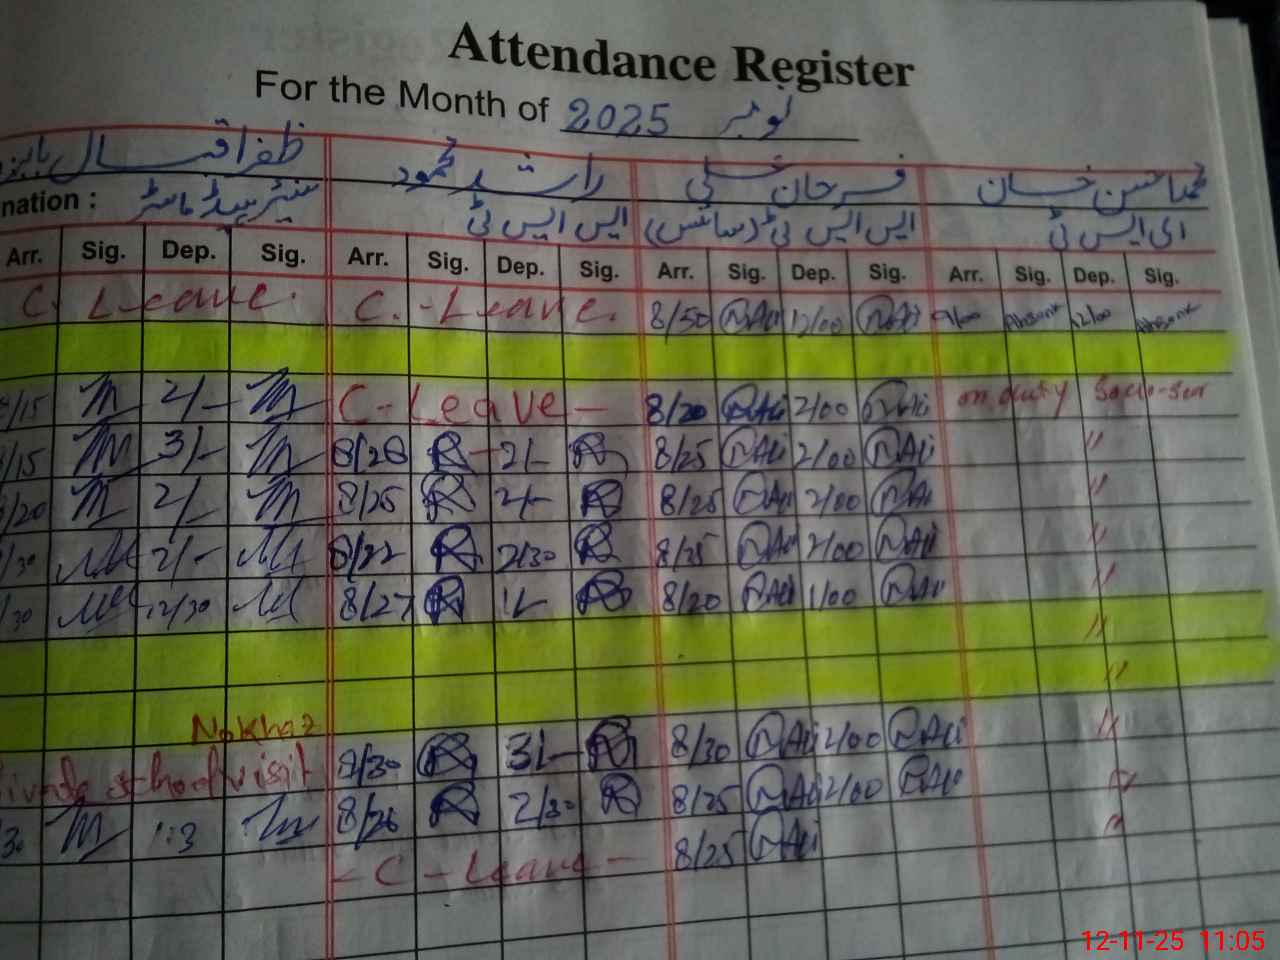 Attendance Register
For the Month of 2025 نومبر
ظفر اقبال بابر راشد محمود فرحان علی محمد حسن خان
nation : سینئر ہیڈ ماسٹر ایس ایس ٹی ایس ایس ٹی (سائنس) ای ایس ٹی
Arr. Sig. Dep. Sig. Arr. Sig. Dep. Sig. Arr. Sig. Dep. Sig. Arr. Sig. Dep. Sig.
C. Leave. C. - Leave. 8/50 Ali 12/00 Ali 9/00 Absent 12/00 Absent
8/15 2/- C - Leave - 8/20 Ali 2/00 Ali on duty
/15 3/- 8/28 2/- 8/25 Ali 2/00 Ali "
/20 2/- 8/25 2/- 8/25 Ali 2/00 Ali "
/30 2/- 8/22 2/30 8/25 Ali 2/00 Ali "
/30 12/30 8/27 1/- 8/20 Ali 1/00 Ali "
"
"
8/30 3/- 8/30 Ali 2/00 Ali "
private school visit 8/26 2/30 8/25 Ali 2/00 Ali "
30 1:3 - C - Leave - 8/25 Ali "
12-11-25 11:05